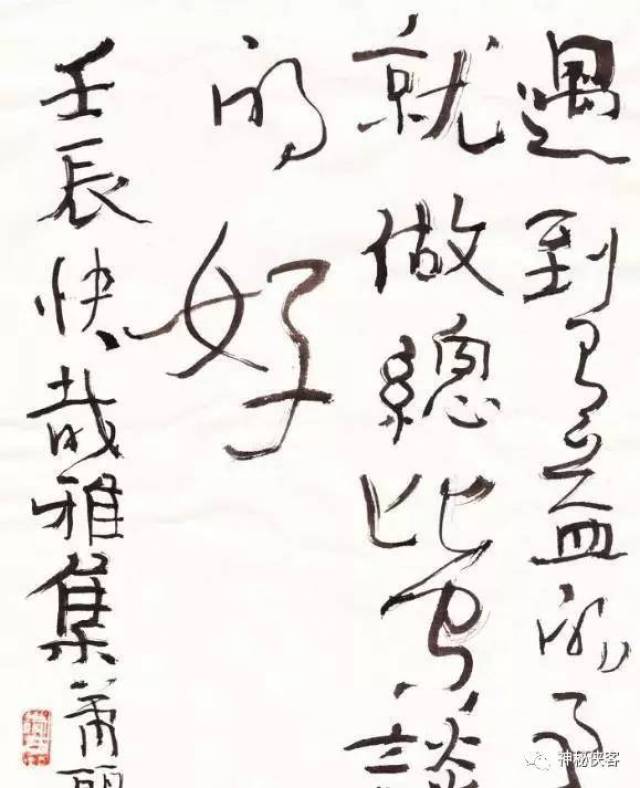 遇到有益的事
就做總比空談
的好
壬辰快哉雅集萧
神秘侠客